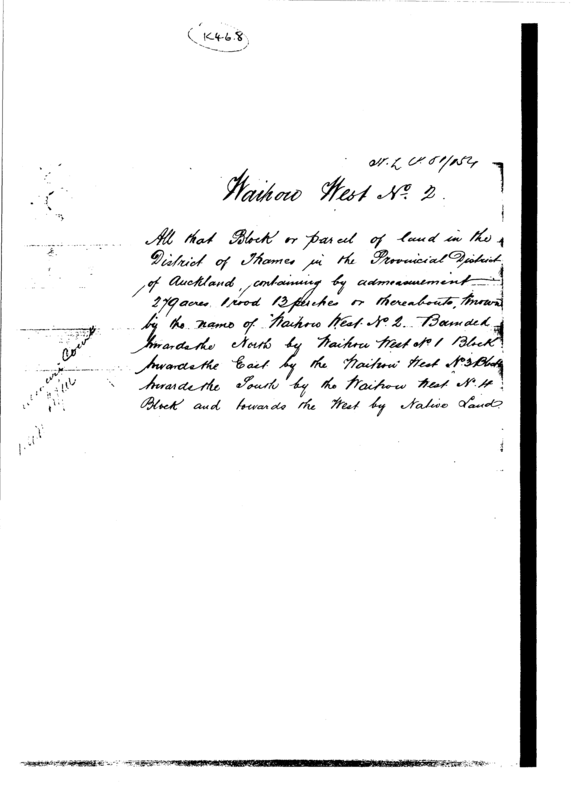 K46.8
N. L. C.
Waihou West No. 2.
All that Block or parcel of land in the
District of Thames in the Provincial District
of Auckland, containing by admeasurement
279 acres 1 rood 13 perches or thereabouts, known
by the name of Waihou West No 2. Bounded
towards the North by Waihou West No 1 Block
towards the East by the Waihou West No 3 Block
towards the South by the Waihou West No 4
Block and towards the West by Native Land